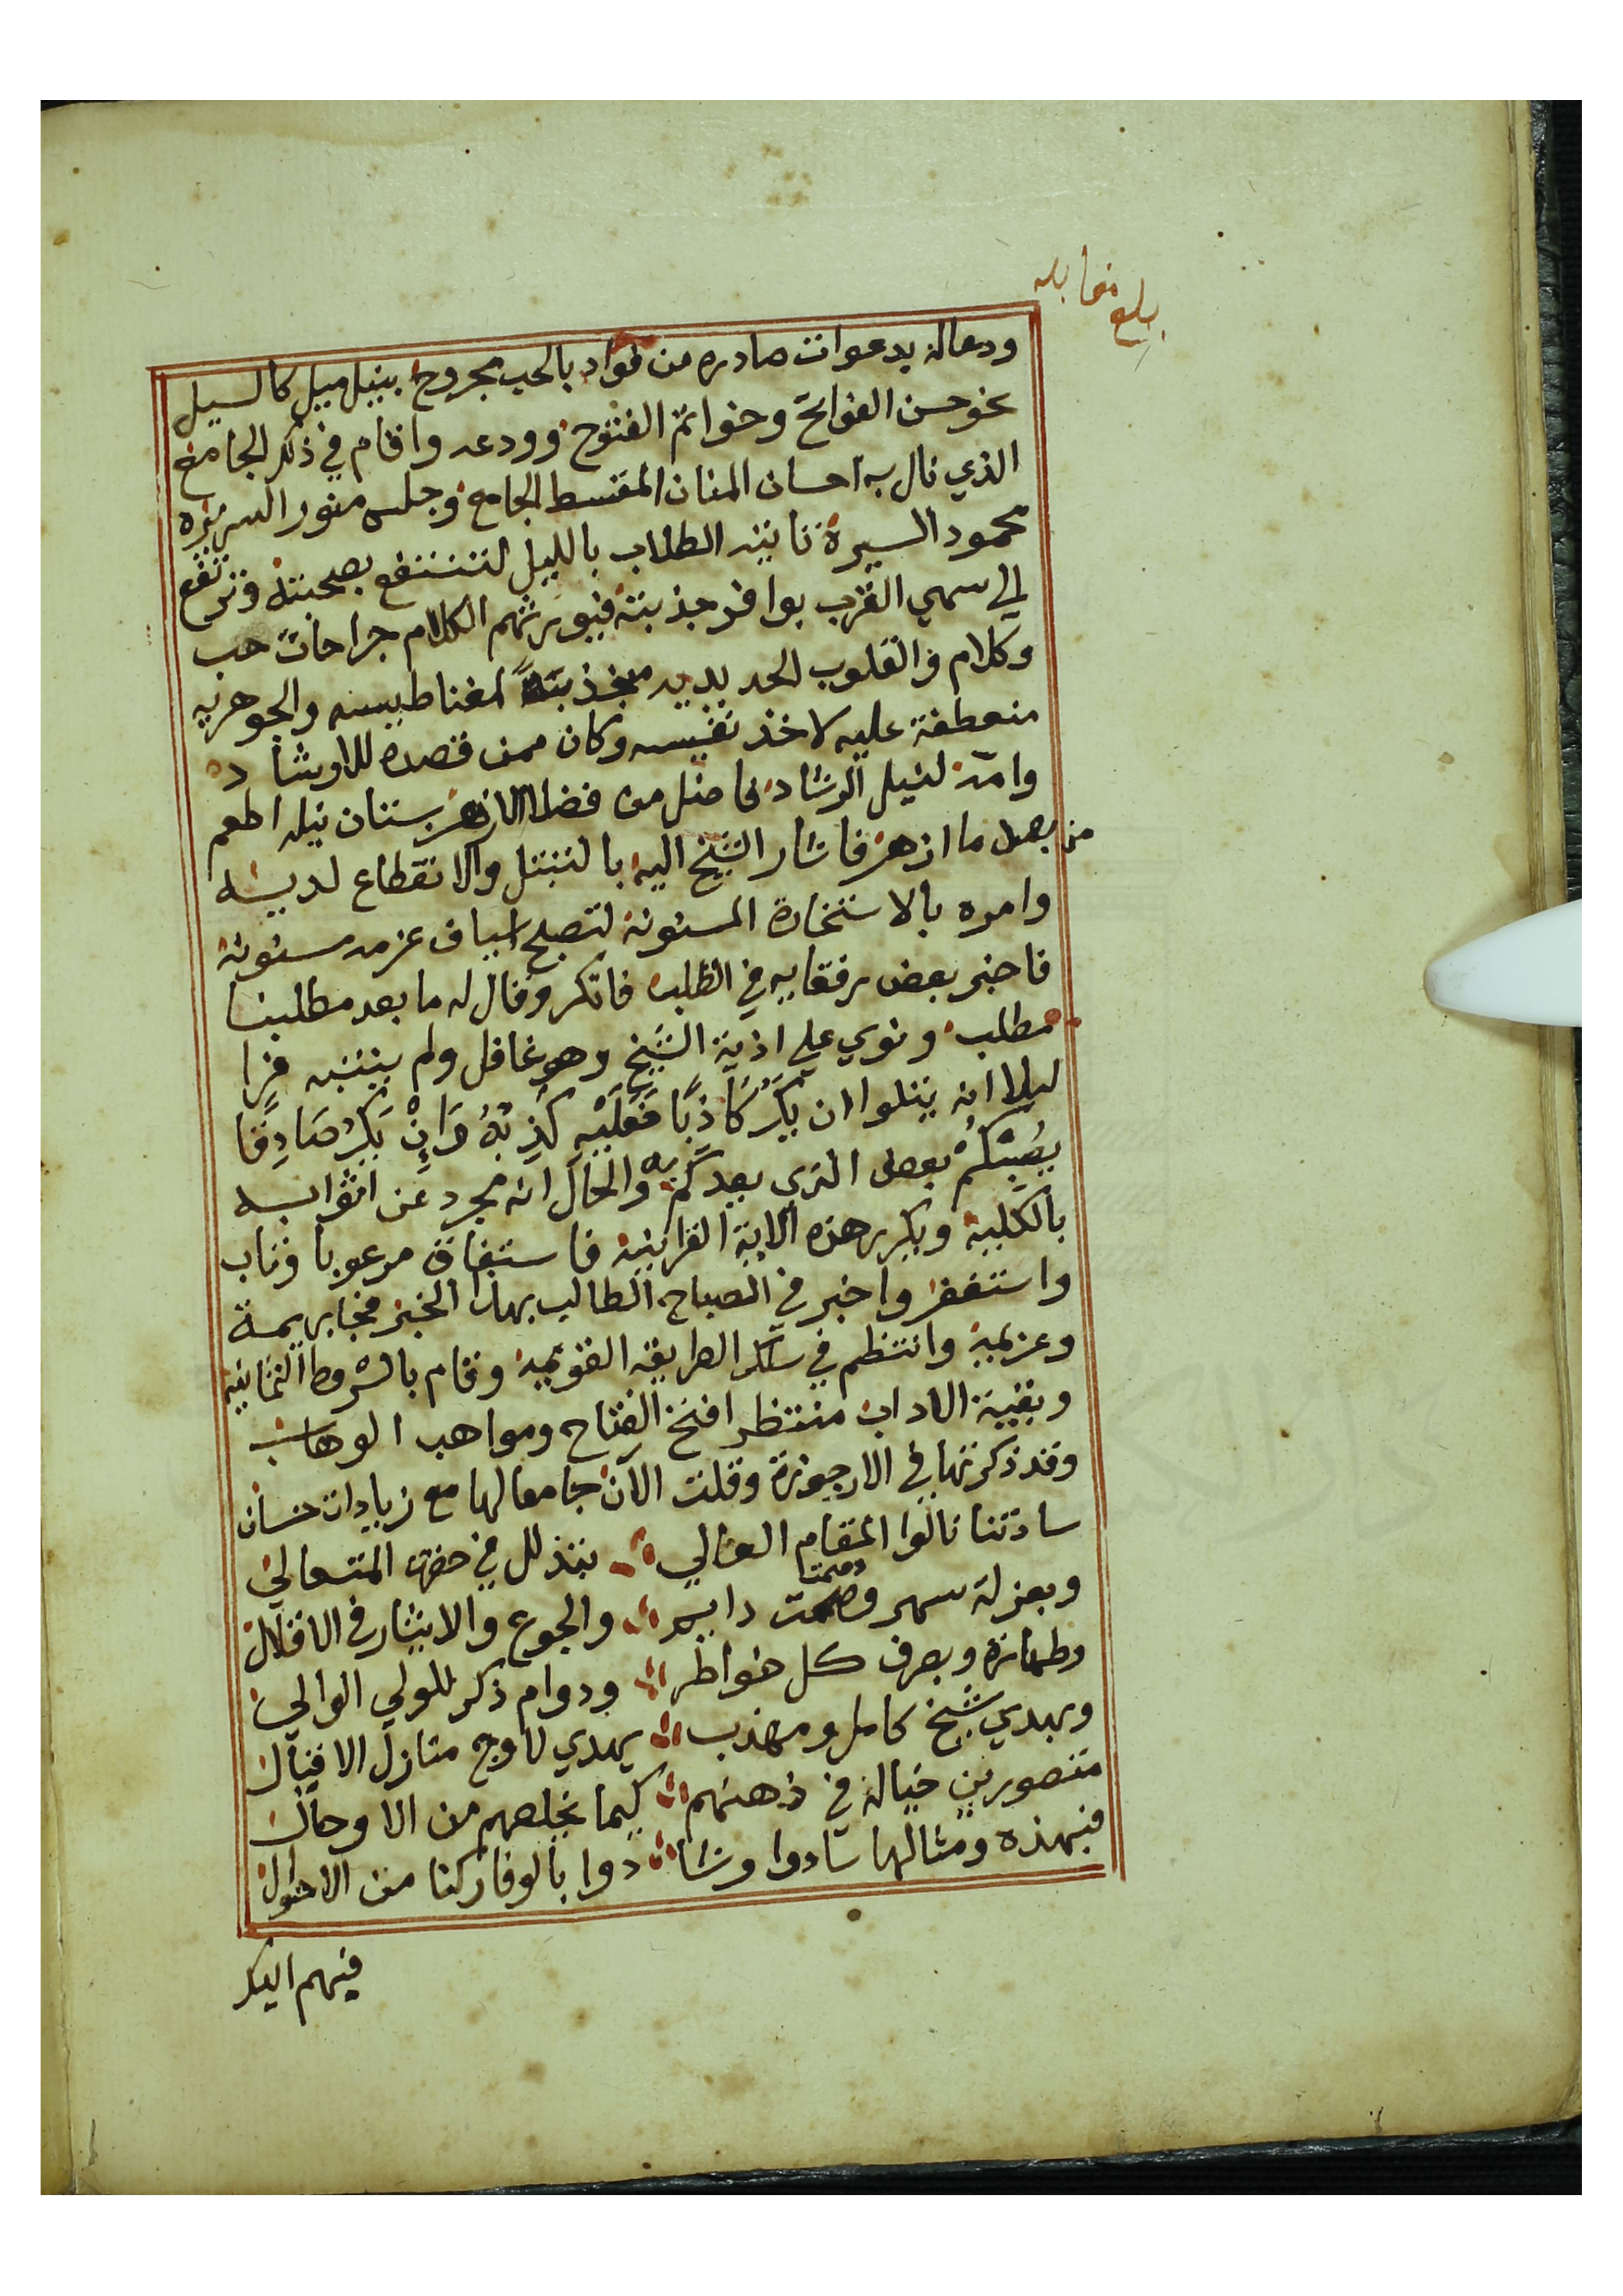 بلغ مقابله
ودعاله بدعوات صادره من فواد بالحب مجروح بنيل ميل كالسيل
نحو حسن الفواتح وخواتم الفتوح وودعه واقام في ذلك الجامع
الذي نال به احسان المنان المقسط الجامع وجلس منور السريره
محمود السيرة تاتيه الطلاب بالليل لتنتفع بصحبته وترتفع
الي سمي القرب بوافر جذبته فيورثهم الكلام جراحات حب
وكلام والقلوب الحديديه منجذبة لمغناطيسه والجوهريه
منعطفة عليه لاخذ نفيسه وكان ممن قصده للاوشاد
وامه لنيل الرشاد فاضل من فضلا الازهر بستان نيله اطعم
من بصل ما ازهر فاشار الشيخ اليه بالتبتل والانقطاع لديه
وامره بالاستخارة المسنونة لتصلح اسياف عزمه مسنونة
فاخبر بعض رفقايه في الطلب فانكر وقال له ما بعد مطلبنا
مطلب ونوي علي اذية الشيخ وهو غافل ولم ينتبه فرا
ليلا انه يتلوا ان يَكُ كَاذِبًا فَعَلَيْهِ كَذِبُهُ وَاِنْ يَكُ صَادِقًا
يُصِبْكُمْ بعض الذي يعدكم والحال انه مجرد عن اثوابه
بالكلية ويكرر هذه الاية القرانية فاستفاق مرعوبا وتاب
واستغفر واخبر في الصباح الطالب بهذا الخبر فجا بريمة
وعزيمة وانتظم في سلك الطريقه القويمه وقام بالشروط الثمانية
وبقية الاداب منتظرا فتح الفتاح ومواهب الوهاب
وقد ذكرتها في الارجوزة وقلت الآن جامعا لها مع زيادات حسان
ساداتنا نالوا المقام العالي بتذلل في حضرة المتعالي
وبعزلة سهر وصمت دايم والجوع والايثار في الاقلال
وصمت
وطهارة وبصرف كل خواطر ودوام ذكر للولي الوالي
وبهدي شيخ كامل ومهذب يهدي لاوج منازل الاقبال
متصورين خياله في ذهنهم كيما يخلصهم من الاوحال
فبهذه ومثالها سادوا وشا دوا بالوفا ركنا من الاحوال
فيهم اليك